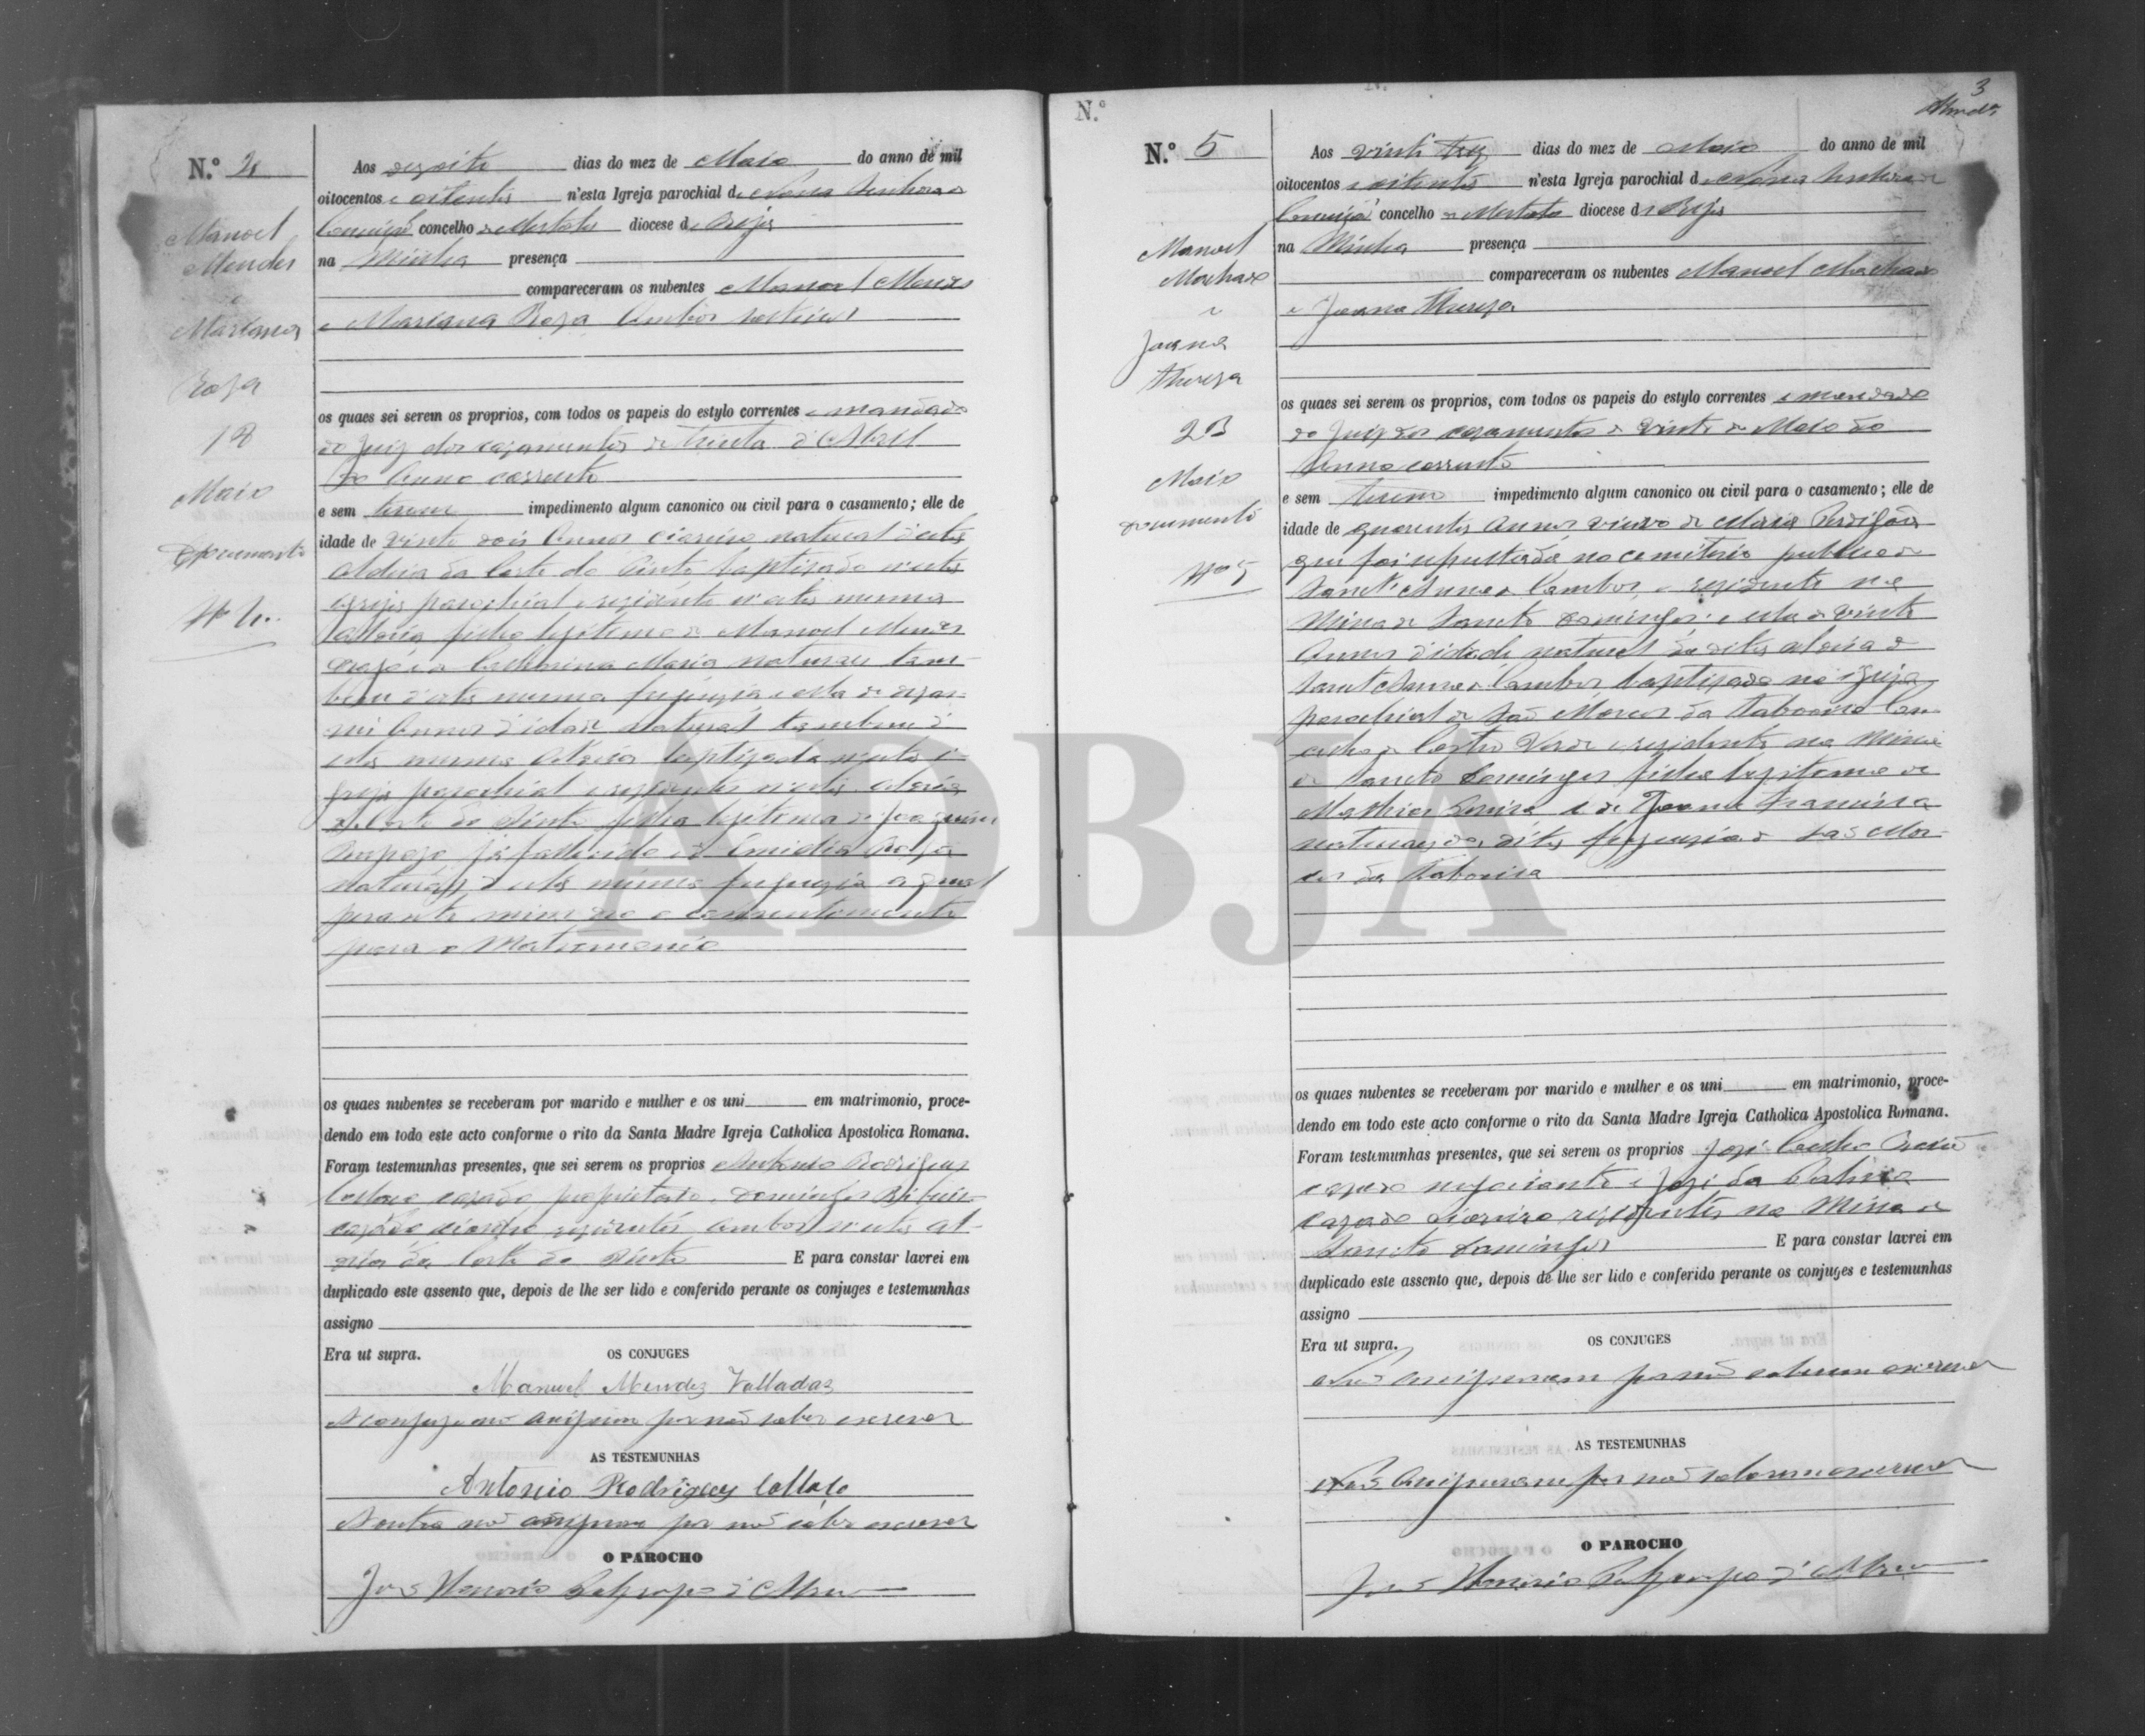 N.º 4
Manoel
Mendes
e
Marianna
Roza
18
Maio
Documento
Nº 4.
Aos dezoito dias do mez de Maio do anno de mil
oitocentos e oitenta n'esta Igreja parochial de Nossa Senhora da
Conceição concelho de Mertola diocese de Beja
na Minha presença
compareceram os nubentes Manoel Mendes
e Mariana Roza Ambos solteiros
os quaes sei serem os proprios, com todos os papeis do estylo correntes e mandado
do Juiz dos cazamentos de trinta d'Abril
do Anno corrente
e sem terem impedimento algum canonico ou civil para o casamento; elle de
idade de vinte dois Annos natural d'esta
Aldeia da Corte do Pinto baptizado n'esta
Igreja parochial e rezidente n'esta mesma
Aldeia filho legitimo de Manoel Mendes
e de Catharina Maria naturaes tam-
bem d'esta mesma freguezia e ella de dezas-
seis Annos d'idade Natural tambem d'
esta mesma Aldeia baptizada n'esta I-
greja parochial e rezidente n'esta Aldeia
da Corte do Pinto filha legitima de Joaquim
já fallecido e de Emidia Roza
naturaes d'esta mesma freguezia a qual
perante mim deo o consentimento
para o Matrimonio
os quaes nubentes se receberam por marido e mulher e os uni em matrimonio, proce-
dendo em todo este acto conforme o rito da Santa Madre Igreja Catholica Apostolica Romana.
Foram testemunhas presentes, que sei serem os proprios Antonio Rodrigues
Collaço cazado proprietario e Domingos
cazado rezidentes ambos n'esta Al-
deia da Corte do Pinto E para constar lavrei em
duplicado este assento que, depois de lhe ser lido e conferido perante os conjuges e testemunhas
assigno
Era ut supra.
OS CONJUGES
Manuel Mendez Valladas
A conjuge não assignou por não saber escrever
AS TESTEMUNHAS
Antonio Rodrigues Collaço
A outra não assignou por não saber escrever
O PAROCHO
José Honorio d'Abreu
N.º
3
N.º 5
Manoel
Machado
e
Joanna
Thereza
23
Maio
Documento
Nº 5
Aos vinte trez dias do mez de Maio do anno de mil
oitocentos e oitenta n'esta Igreja parochial de Nossa Senhora da
Conceição concelho de Mertola diocese de Beja
na Minha presença
compareceram os nubentes Manoel Machado
e Joanna Thereza
os quaes sei serem os proprios, com todos os papeis do estylo correntes e mandado
do Juiz dos cazamentos de vinte de Maio do
Anno corrente
e sem terem impedimento algum canonico ou civil para o casamento; elle de
idade de quarenta Annos viuvo de Maria Perdigôa
que foi sepultada no cemiterio publico de
Sant'Anna de Cambas, e rezidente na
Mina de Sancto Domingos: e ella de vinte
Annos d'idade natural da dita aldeia de
Sant'Anna de Cambas, baptizada na igreja
parochial de São Marcos da Taboeira Con-
celho de Castro Verde e rezidente na Mina
de Sancto Domingos filha legitima de
Mathias e de Joanna Francisca
naturaes da dita freguezia de São Mar-
cos da Taboeira
os quaes nubentes se receberam por marido e mulher e os uni em matrimonio, proce-
dendo em todo este acto conforme o rito da Santa Madre Igreja Catholica Apostolica Romana.
Foram testemunhas presentes, que sei serem os proprios José Coelho
cazado negociante e José da Palma
cazado rezidentes na Mina de
Sancto Domingos E para constar lavrei em
duplicado este assento que, depois de lhe ser lido e conferido perante os conjuges e testemunhas
assigno
Era ut supra.
OS CONJUGES
Não Assignaram por não saberem escrever
AS TESTEMUNHAS
Não Assignaram por não saberem escrever
O PAROCHO
José Honorio d'Abreu
ADBJA